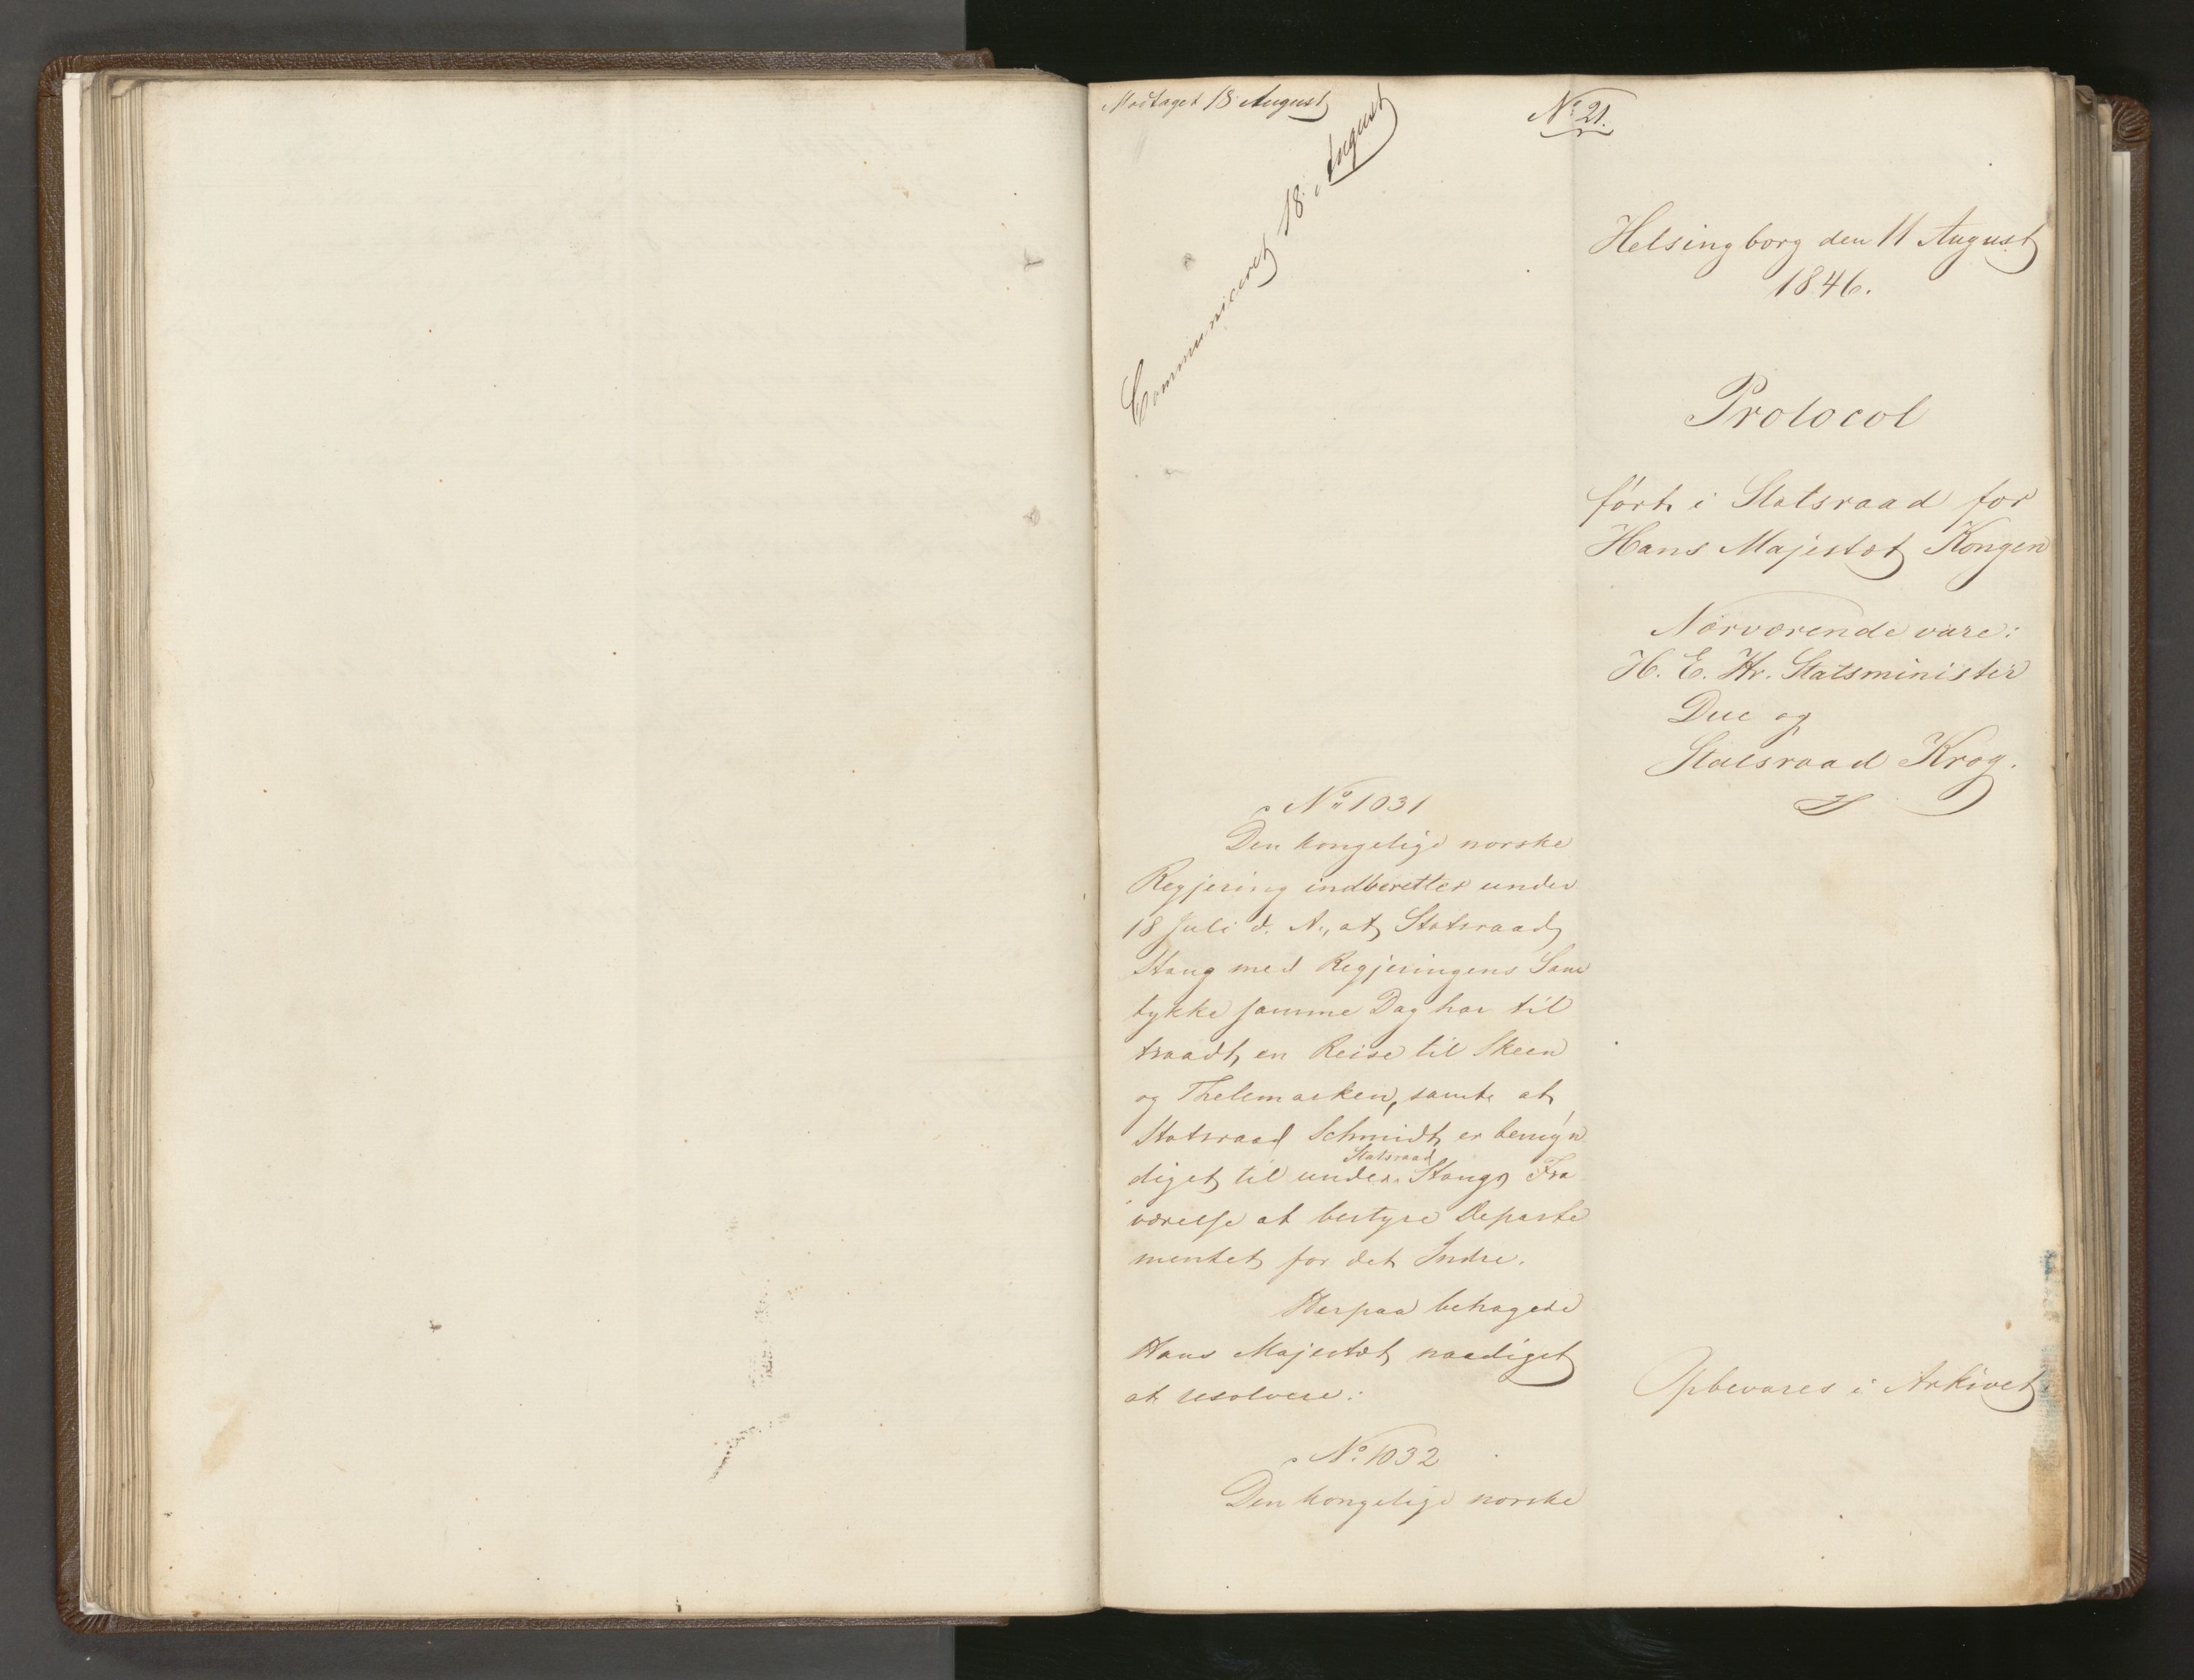 Modtaget 18 August
Communiceret 18 August
No 21.
Helsingborg den 11 August
1846.
Protocol
ført i Statsraad for
Hans Majestæt Kongen
Nærværende vare:
H. E. Hr. Statsminister
Due og
Statsraad Krog.
No 1031
Den kongelige norske
Regjering indberetter under
18 Juli d. A., at Statsraad
Stang med Regjeringens Sam
tykke samme Dag har til
traadt en Reise til Skeen
og Thelemarken, samt at
Statsraad Schmidt er bemyn
diget til under Statsraad Stangs Fra
værelse at bestyre Departe
mentet for det Indre.
Herpaa behagede
Hans Majestæt naadigst
at resolvere:
Opbevares i Arkivet
No 1032
Den kongelige norske